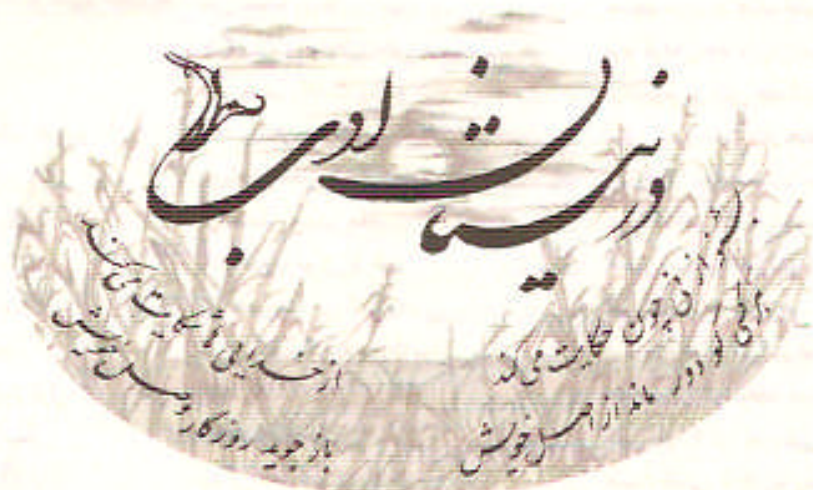 در نیستان ادب
بشنو از نی چون حکایت می کند
از جدایی ها شکایت می کند
هر کسی کو دور ماند از اصل خویش
باز جوید روزگار وصل خویش